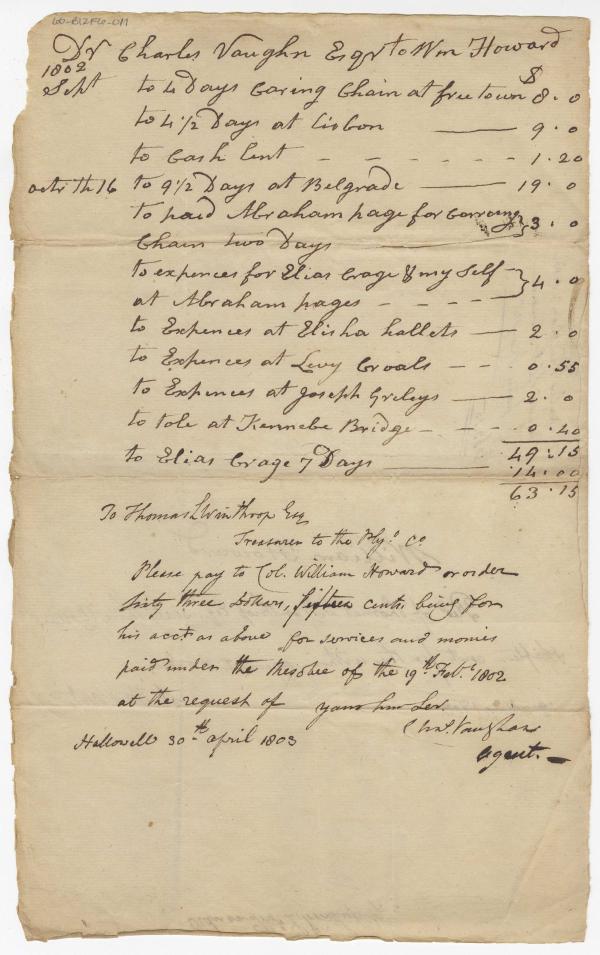 60-B12F6-011
Dr Charles Vaughn Esqr to Wm Howard
1802 $
Sept to 4 Days Caring Chain at freetown 8.0
to 4 1/2 Days at Lisbon 9.0
to Cash lent 1.20
octr th 16 to 9 1/2 Days at Belgrade 19.0
to paid Abraham page for Carreing
Chain two Days } 3.0
to expences for Elias Crage & my Self
at Abraham pages } 4.0
to Expences at Elisha hallets 2.0
to Expences at Levy Croals 0.55
to Expences at Joseph Greleys 2.0
to tole at Kennebe Bridge 0.40
49.15
to Elias Crage 7 Days 14.00
63.15
To Thomas L Winthrop Esq
Treasurer to the Plyo. Co
Please pay to Col. William Howard or order
Sixty three Dollars, fifteen cents. being for
his acct as above for services and monies
paid under the Resolve of the 19th. Feby. 1802
at the request of your hum Ser.
Chas. Vaughan
Agent.
Hallowell 30th april 1803